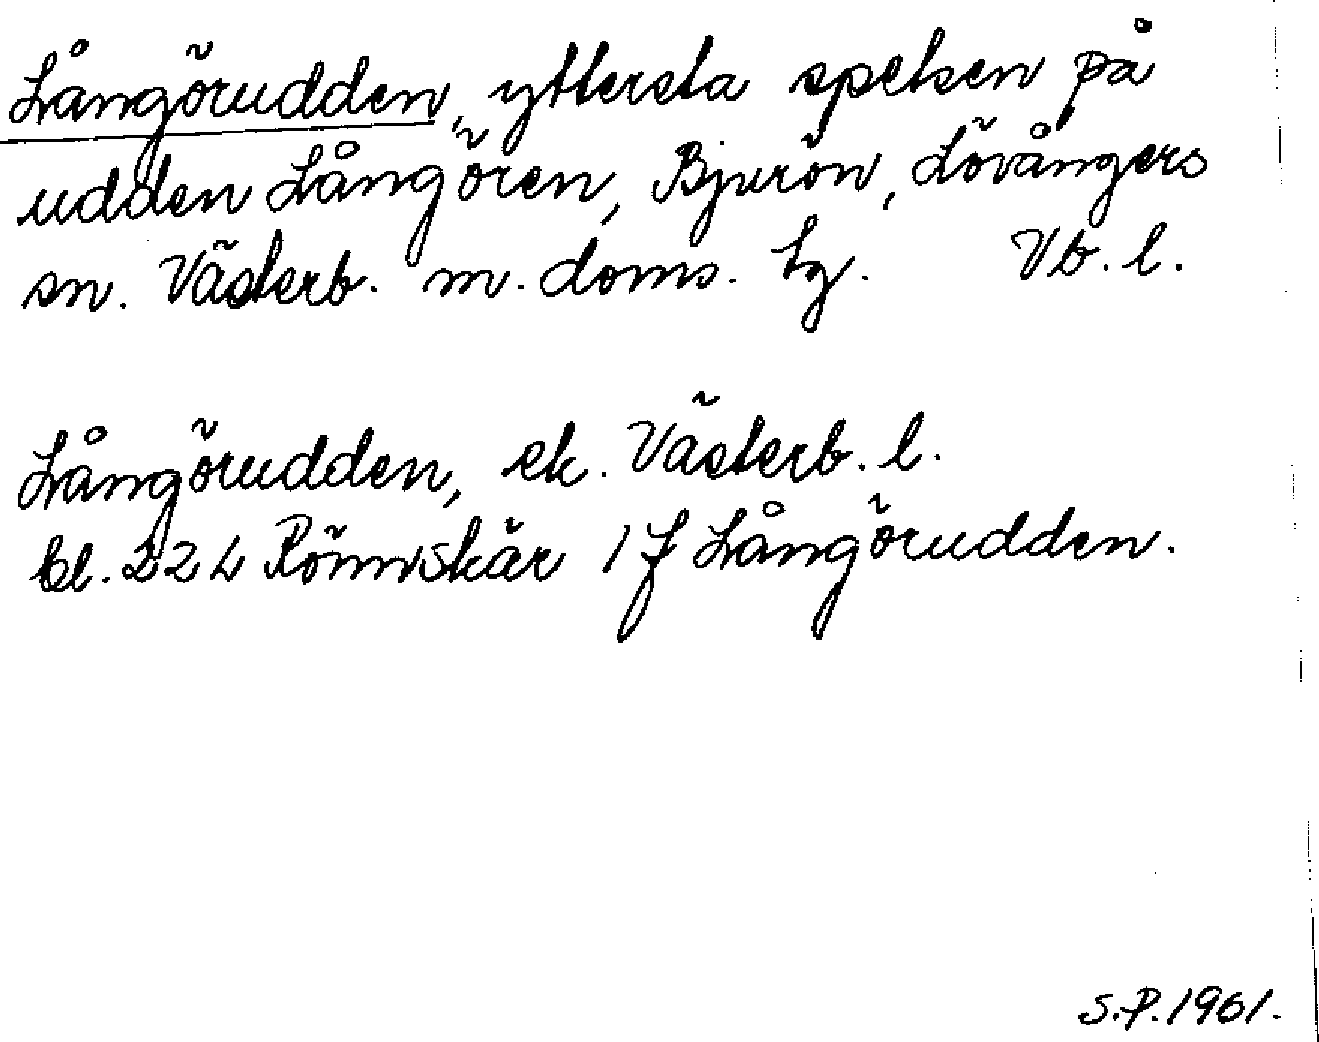 Långörudden, yttersta spetsen på
udden Långören, Bjurön, Lövångers
sn. Västerb. m. doms. tg. Vb. l.
Långörudden, ek. Västerb. l.
bl. 22 L Rönnskär 1 f Långörudden.
S.P. 1961.